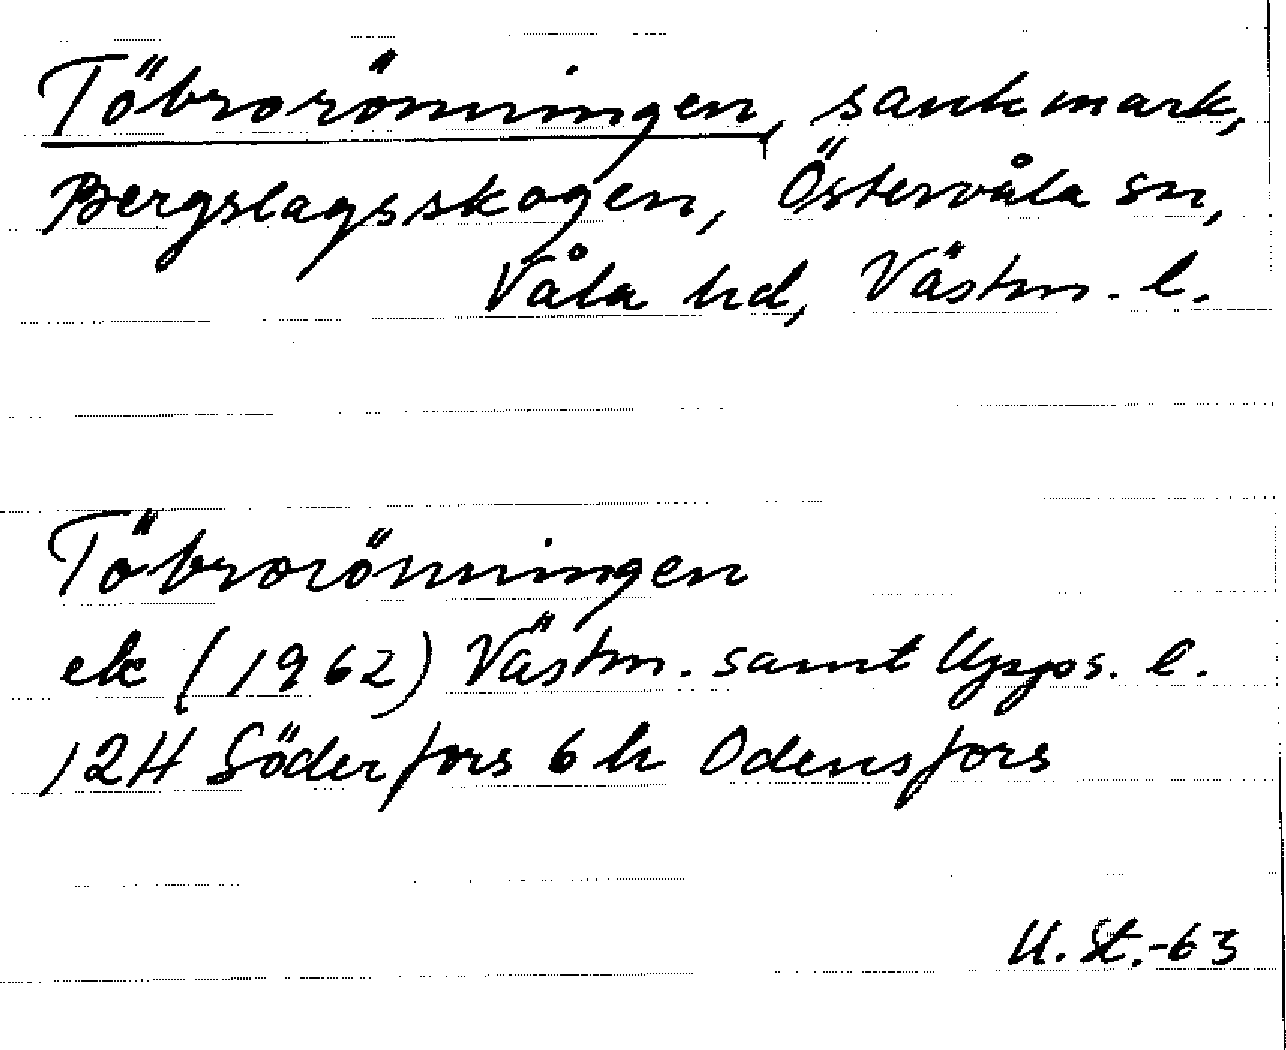 Töbrorönningen, sankmark,
Bergslagsskogen, Östervåla sn,
Våla hd, Västm. l.
Töbrorönningen
ek (1962) Västm. samt Upps. l.
12H Söderfors 6h Odensfors
U. St.-63